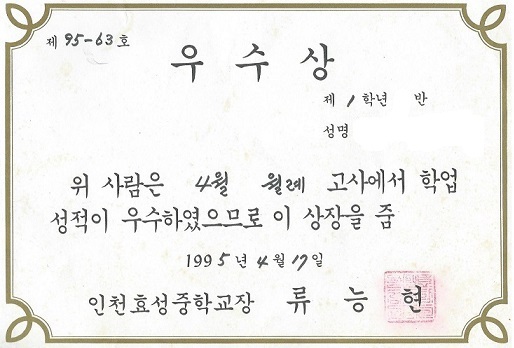 제 95-63 호
우 수 상
제 1 학년 반
성명
위 사람은 4월 월례 고사에서 학업
성적이 우수하였으므로 이 상장을 줌
1995 년 4 월 17 일
인천효성중학교장 류 능 현